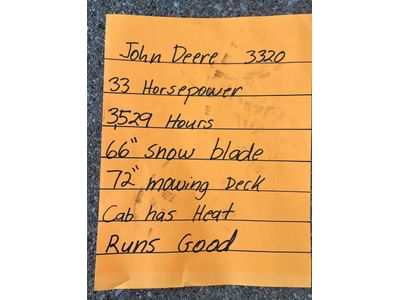 John Deere 3320
33 Horsepower
3,529 Hours
66" snow blade
72" mowing Deck
Cab has Heat
Runs Good